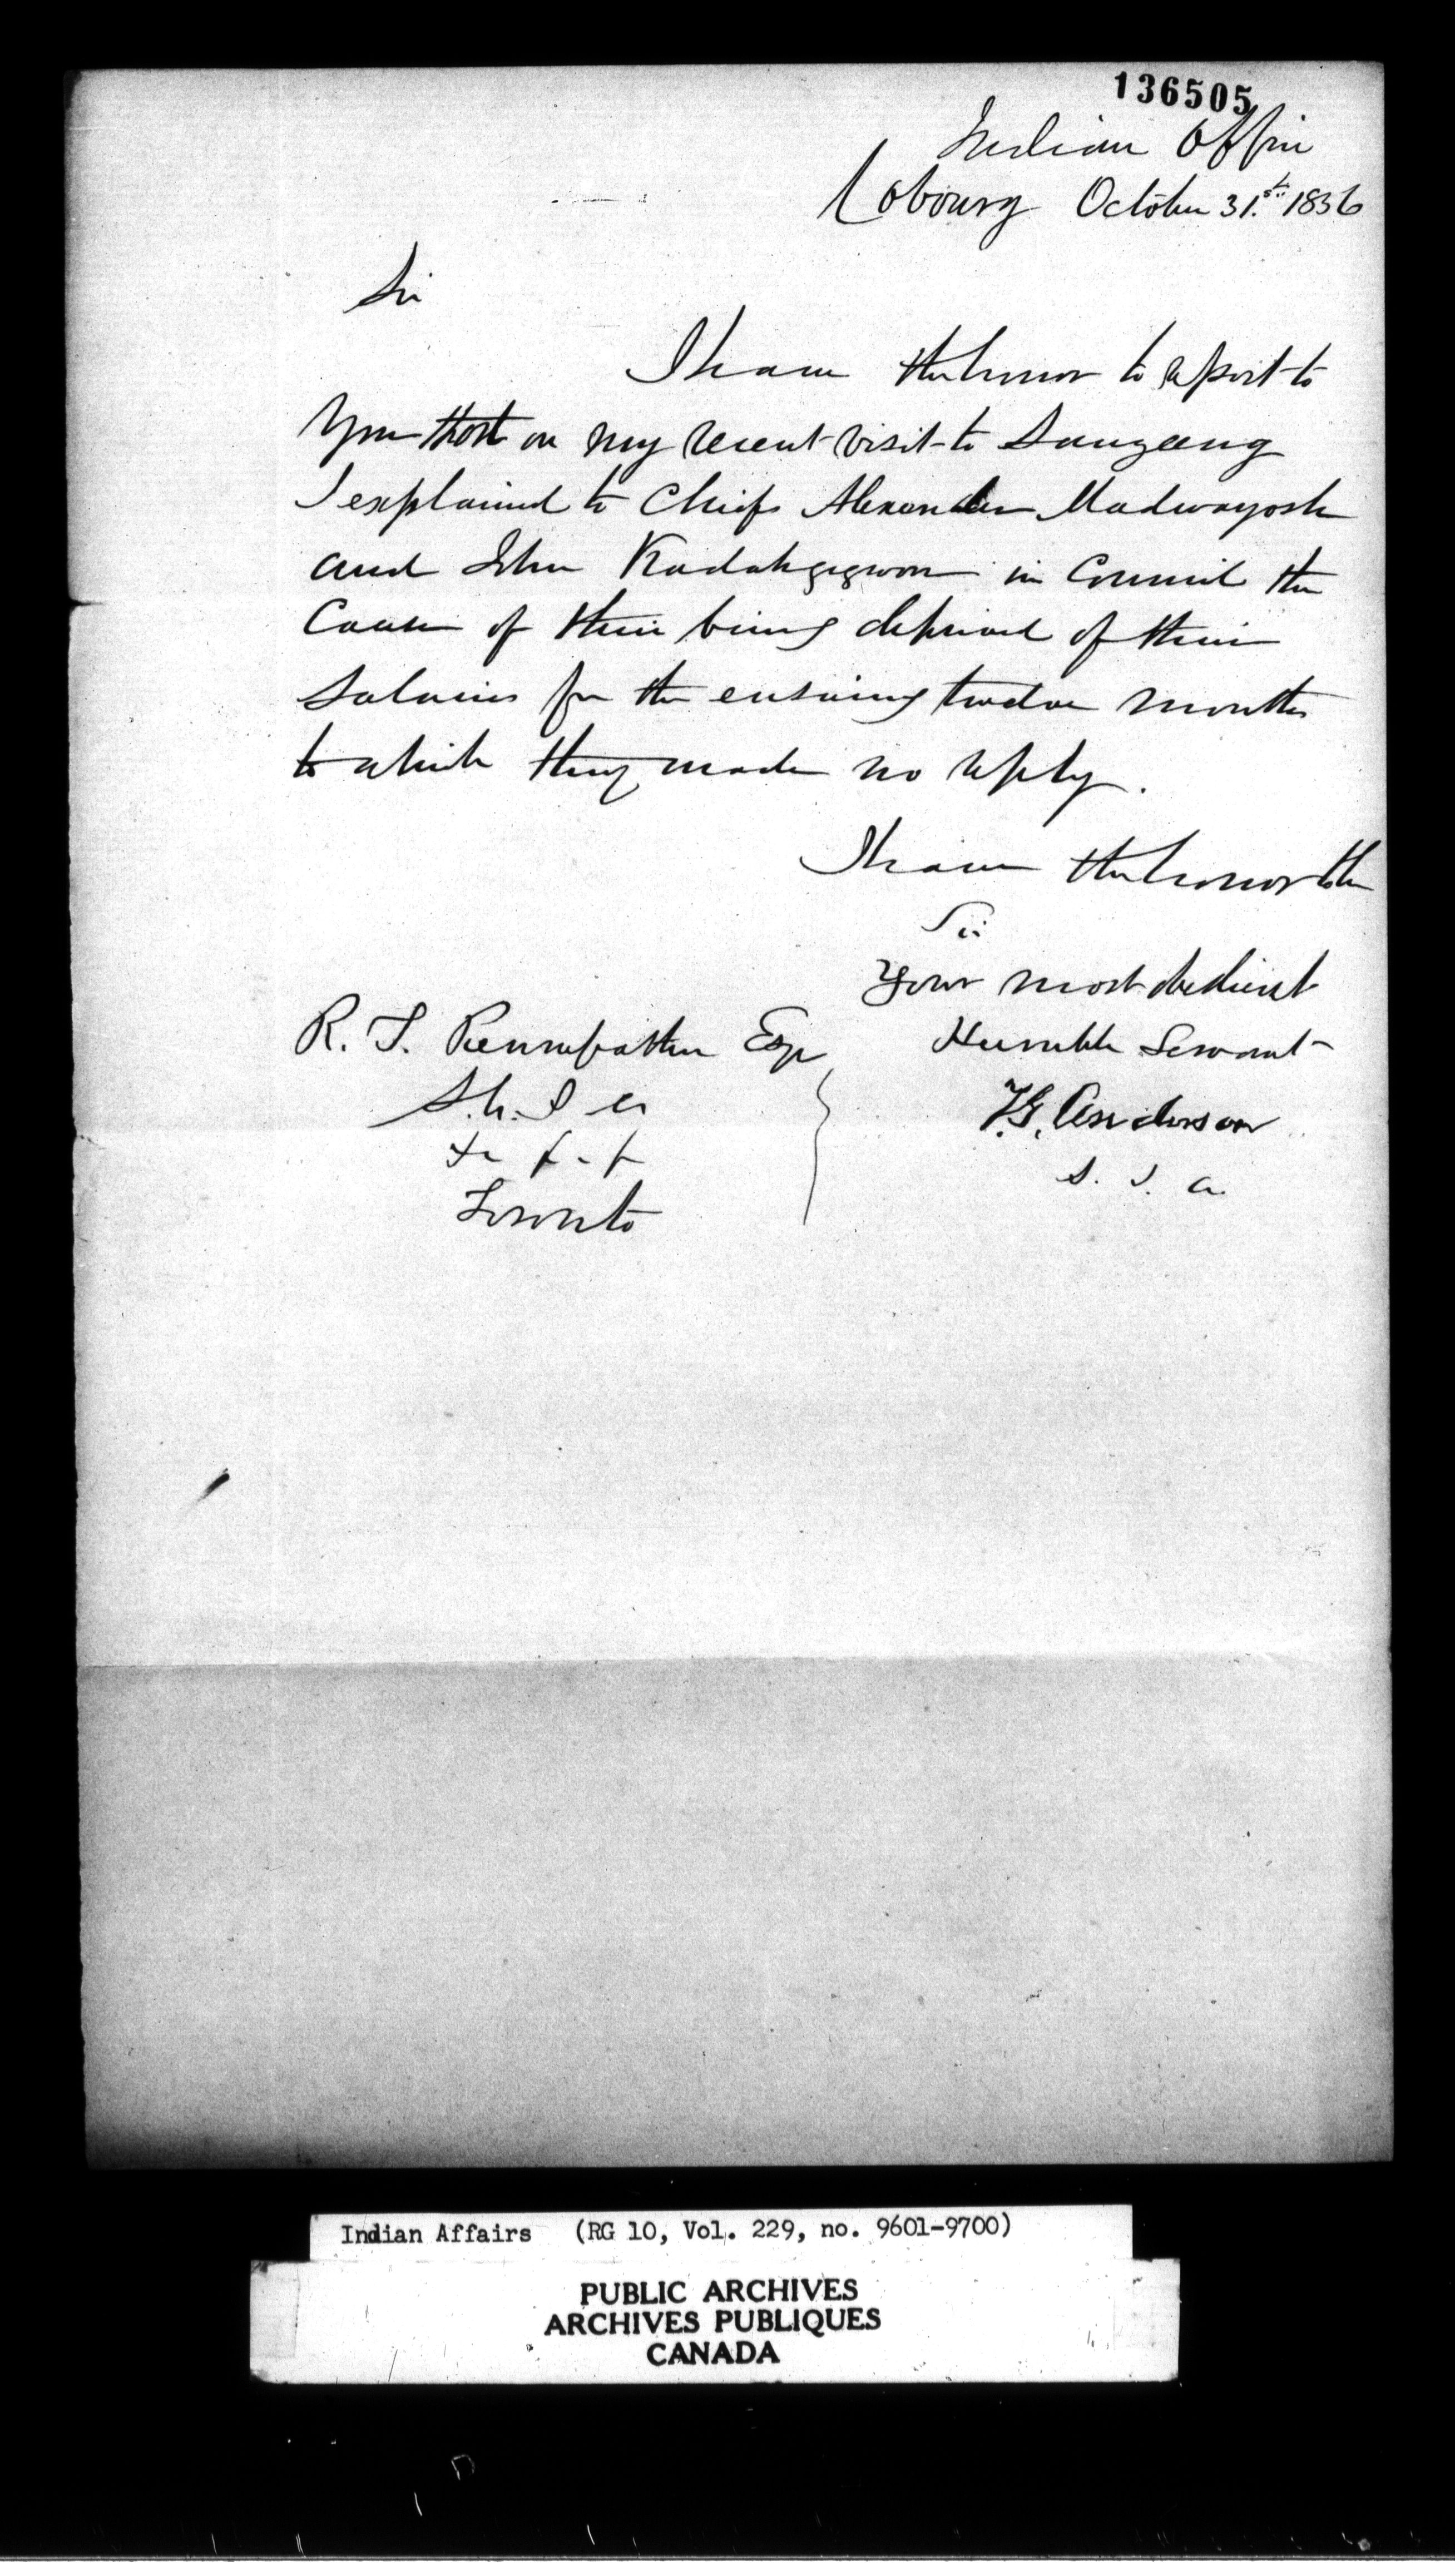 136505
Indian Office
Cobourg October 31st 1856
Sir
I have the honor to report to
you that on my recent visit to Saugeeng
I explained to Chiefs Alexander Madwayosh
and John Kadahgegwon in Council the
Cause of their being deprived of their
Salaries for the ensuing twelve months
to which they made no reply.
I have the honor to be
Sir
Your most obedient
Humble Servant
T.G. Anderson
S. I. A.
R. T. Pennefather Esqr
S. G. I. A
Toronto
Indian Affairs (RG 10, Vol. 229, no. 9601-9700)
PUBLIC ARCHIVES
ARCHIVES PUBLIQUES
CANADA